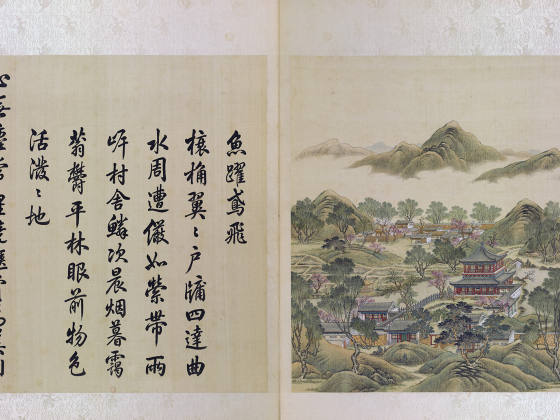 魚躍鳶飛
榱桷翼〻戶牖四達曲
水周遭儼如縈帶兩
岸村舍鱗次晨烟暮靄
蓊鬱平林眼前物色
活潑〻地